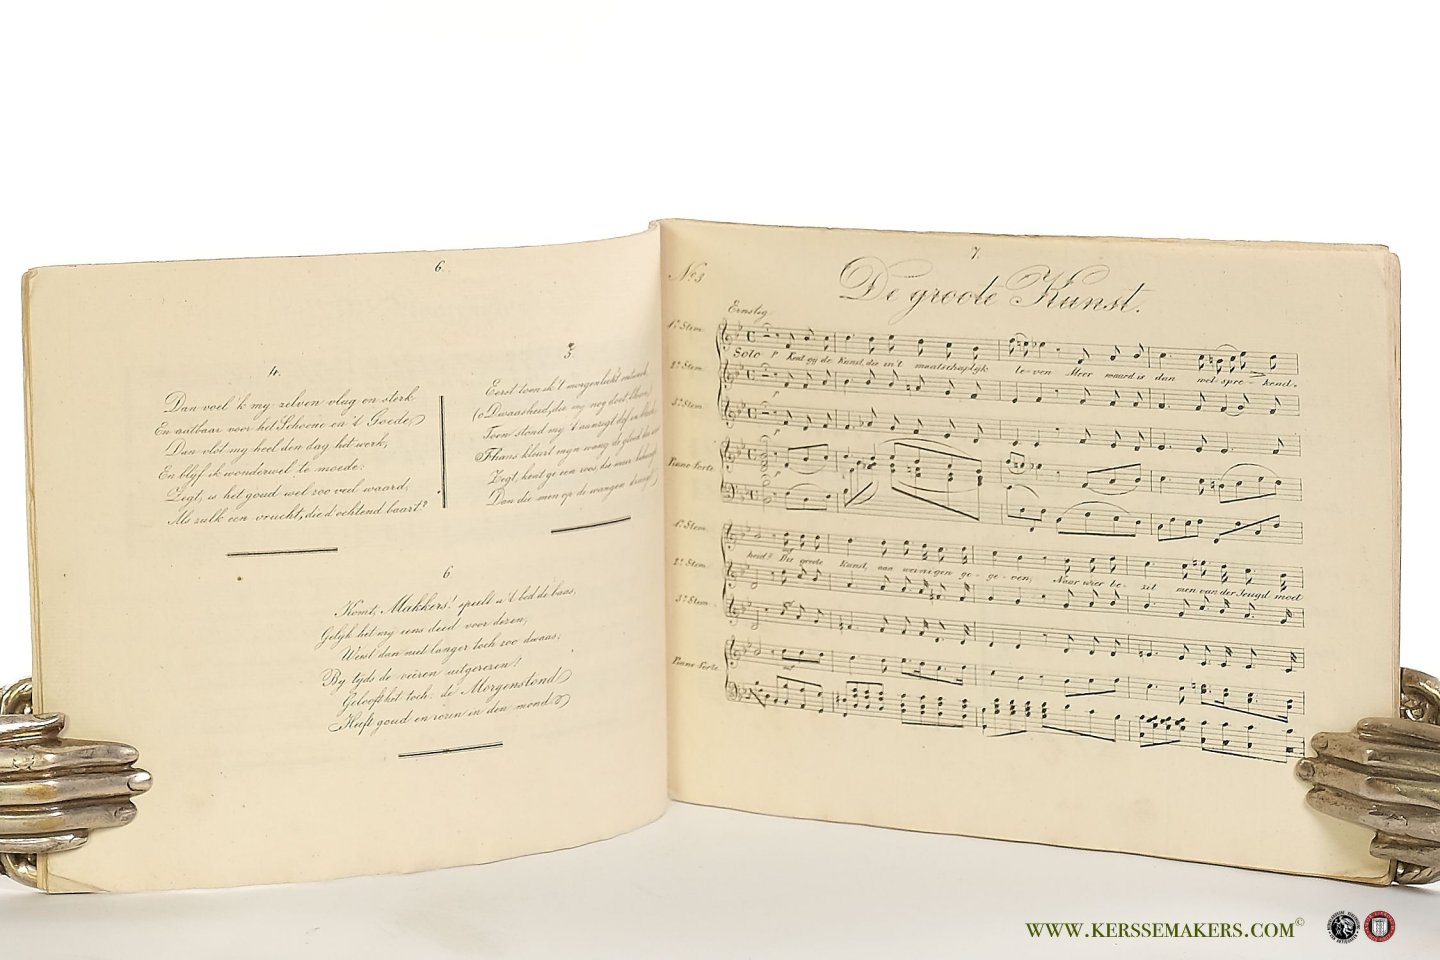 6.
4.
Dan voel 'k my zelven vlug en sterk
En vatbaar voor het Schoone en 't Goede,
Dan vlot my heel den dag het werk,
En blyf ik wonderwel te moede:
Zegt, is het goud wel zoo veel waard,
Als zulk een vrucht, die d'ochtend baart?
5.
Eerst toen ik 't morgenlicht
(o Dwaasheid, die my nog doet
Toen stond my 't aanzigt dof en
Thans kleurt myn wang de gloed
Zegt, kent ge een roos, die meer
Dan die men op de wangen draagt
6
Komt, Makkers! speelt u 't bed de baas,
Gelyk het my eens deed voor dezen,
Weest dan niet langer toch zoo dwaas;
By tyds de veêren uitgerezen!
Gelooft het toch: de Morgenstond
Heeft goud en rozen in den mond
7.
No 3
De groote Kunst.
Ernstig
1e Stem.
Solo P Kent gij de Kunst, die in 't maatschaplyk le-ven Meer waard is dan wel-spre-kend-
2e Stem.
3e Stem.
Piano Forte.
1e Stem.
heid? Die groote Kunst, aan weinigen ge-ge-ven, Naar wier be-zit men van der Jeugd moet
2e Stem.
3e Stem.
Piano Forte.
WWW.KERSSEMAKERS.COM©